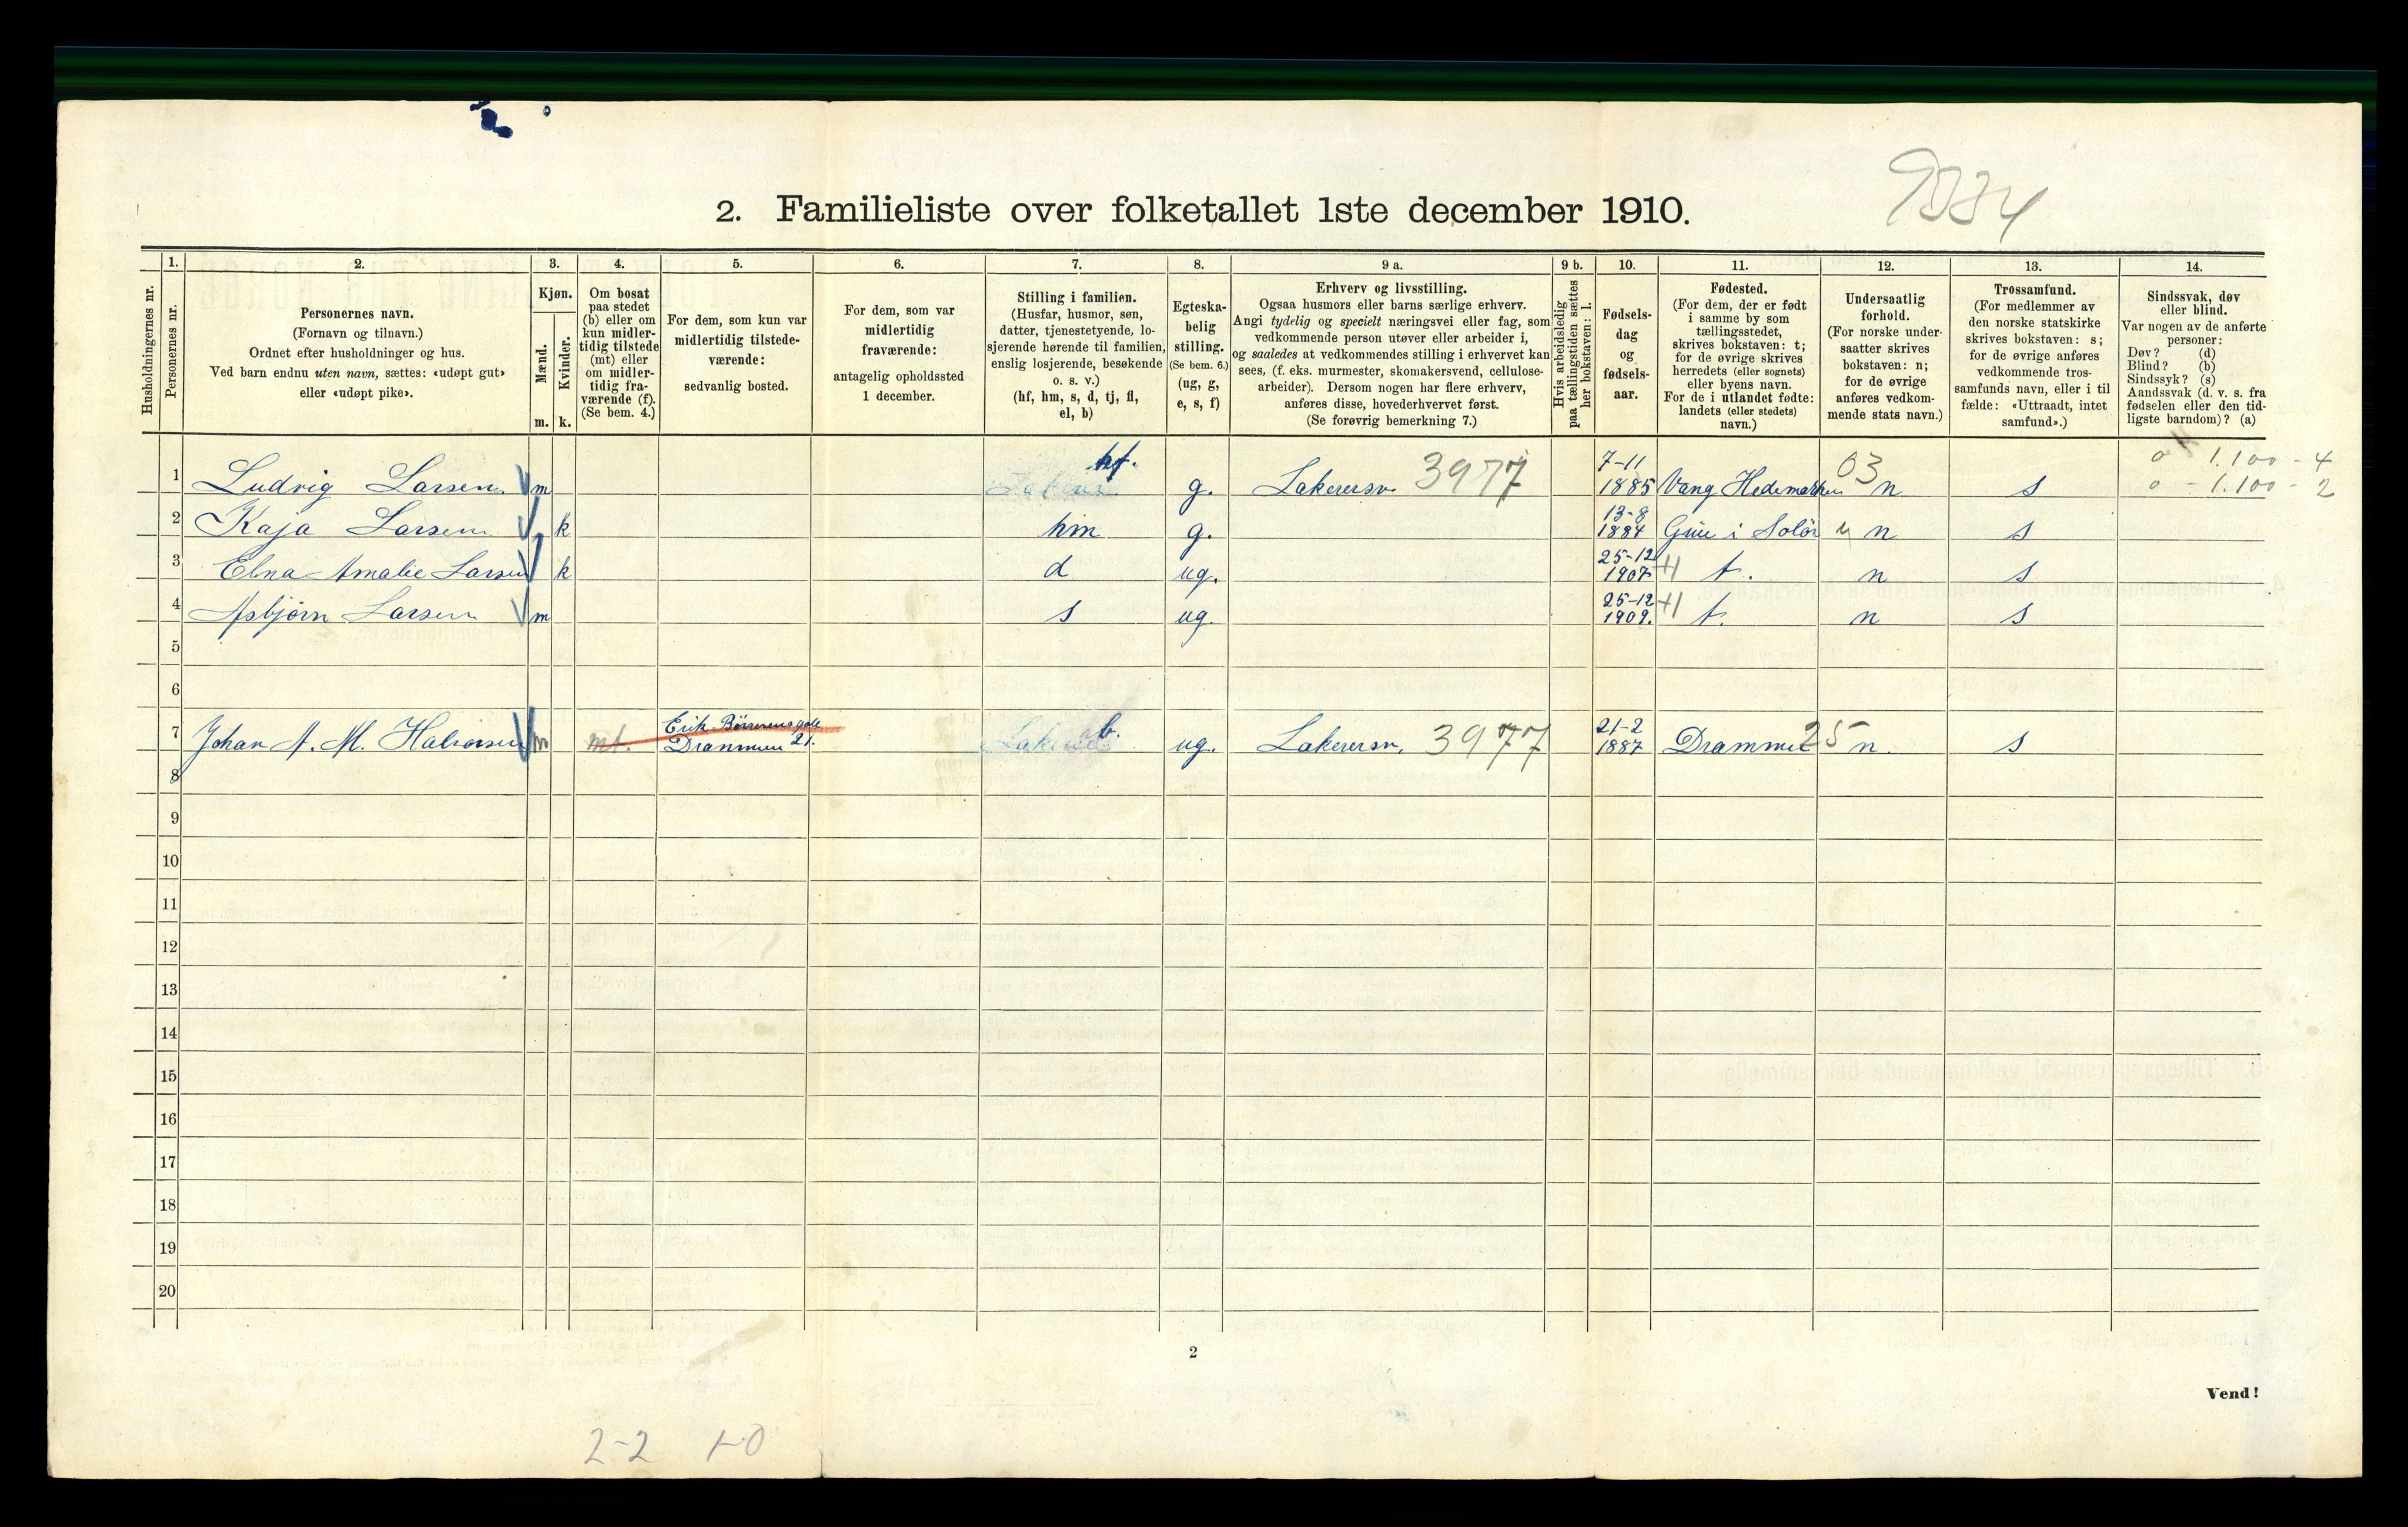 2. Familieliste over folketallet 1ste december 1910.
Husholdningernes nr.
1.
Personernes nr.
2.
Personernes navn.
(Fornavn og tilnavn.)
Ordnet efter husholdninger og hus.
Ved barn endnu uten navn, sættes: «udøpt gut»
eller «udøpt pike».
3.
Kjøn.
Mænd.
Kvinder.
m. k.
4.
Om bosat
paa stedet
(b) eller om
kun midler-
tidig tilstede
(mt) eller
om midler-
tidig fra-
værende (f).
(Se bem. 4.)
5.
For dem, som kun var
midlertidig tilstede-
værende:
sedvanlig bosted.
6.
For dem, som var
midlertidig
fraværende:
antagelig opholdssted
1 december.
7.
Stilling i familien.
(Husfar, husmor, søn,
datter, tjenestetyende, lo-
sjerende hørende til familien,
enslig losjerende, besøkende
o. s. v.)
(hf, hm, s, d, tj, fl,
el, b)
8.
Egteska-
belig
stilling.
(Se bem. 6.)
(ug, g,
e, s, f)
9 a.
Erhverv og livsstilling.
Ogsaa husmors eller barns særlige erhverv.
Angi tydelig og specielt næringsvei eller fag, som
vedkommende person utøver eller arbeider i,
og saaledes at vedkommendes stilling i erhvervet kan
sees, (f. eks. murmester, skomakersvend, cellulose-
arbeider). Dersom nogen har flere erhverv,
anføres disse, hovederhvervet først.
(Se forøvrig bemerkning 7.)
9 b.
Hvis arbeidsledig
paa tællingstiden sættes
her bokstaven: l.
10.
Fødsels-
dag
og
fødsels-
aar.
11.
Fødested.
(For dem, der er født
i samme by som
tællingsstedet,
skrives bokstaven: t;
for de øvrige skrives
herredets (eller sognets)
eller byens navn.
For de i utlandet fødte:
landets (eller stedets)
navn.)
12.
Undersaatlig
forhold.
(For norske under-
saatter skrives
bokstaven: n;
for de øvrige
anføres vedkom-
mende stats navn.)
13.
Trossamfund.
(For medlemmer av
den norske statskirke
skrives bokstaven: s;
for de øvrige anføres
vedkommende tros-
samfunds navn, eller i til
fælde: «Uttraadt, intet
samfund».)
14.
Sindssvak, døv
eller blind.
Var nogen av de anførte
personer:
Døv? (d)
Blind? (b)
Sindssyk? (s)
Aandssvak (d. v. s. fra
fødselen eller den tid-
ligste barndom)? (a)
1 Ludvig Larsen m hf. g. Lakerersv. 3977 7-11 1885 Vang Hedemarken 03 n s 0 1.100 - 4
0 - 1.100 - 2
2 Kaja Larsen k hm g. 13-8 1884 i Solør n s
3 Amalie Larsen k d ug. 25-12 1907 t. n s
4 Asbjørn Larsen m s ug. 25-12 1909. t. n s
5
6
7 Johan A. M. Halvorsen m mt. Drammen 21. b. ug. Lakerersv. 3977 21-2 1887 Drammen 25 n. s
8
9
10
11
12
13
14
15
16
17
18
19
20
2
Vend!
2-2 1-0